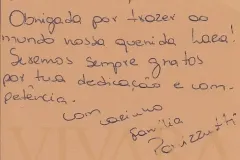 Obrigada por trazer ao
mundo nossa querida Lara!
Seremos sempre gratos
por tua dedicação e com-
petência.
com carinho
família